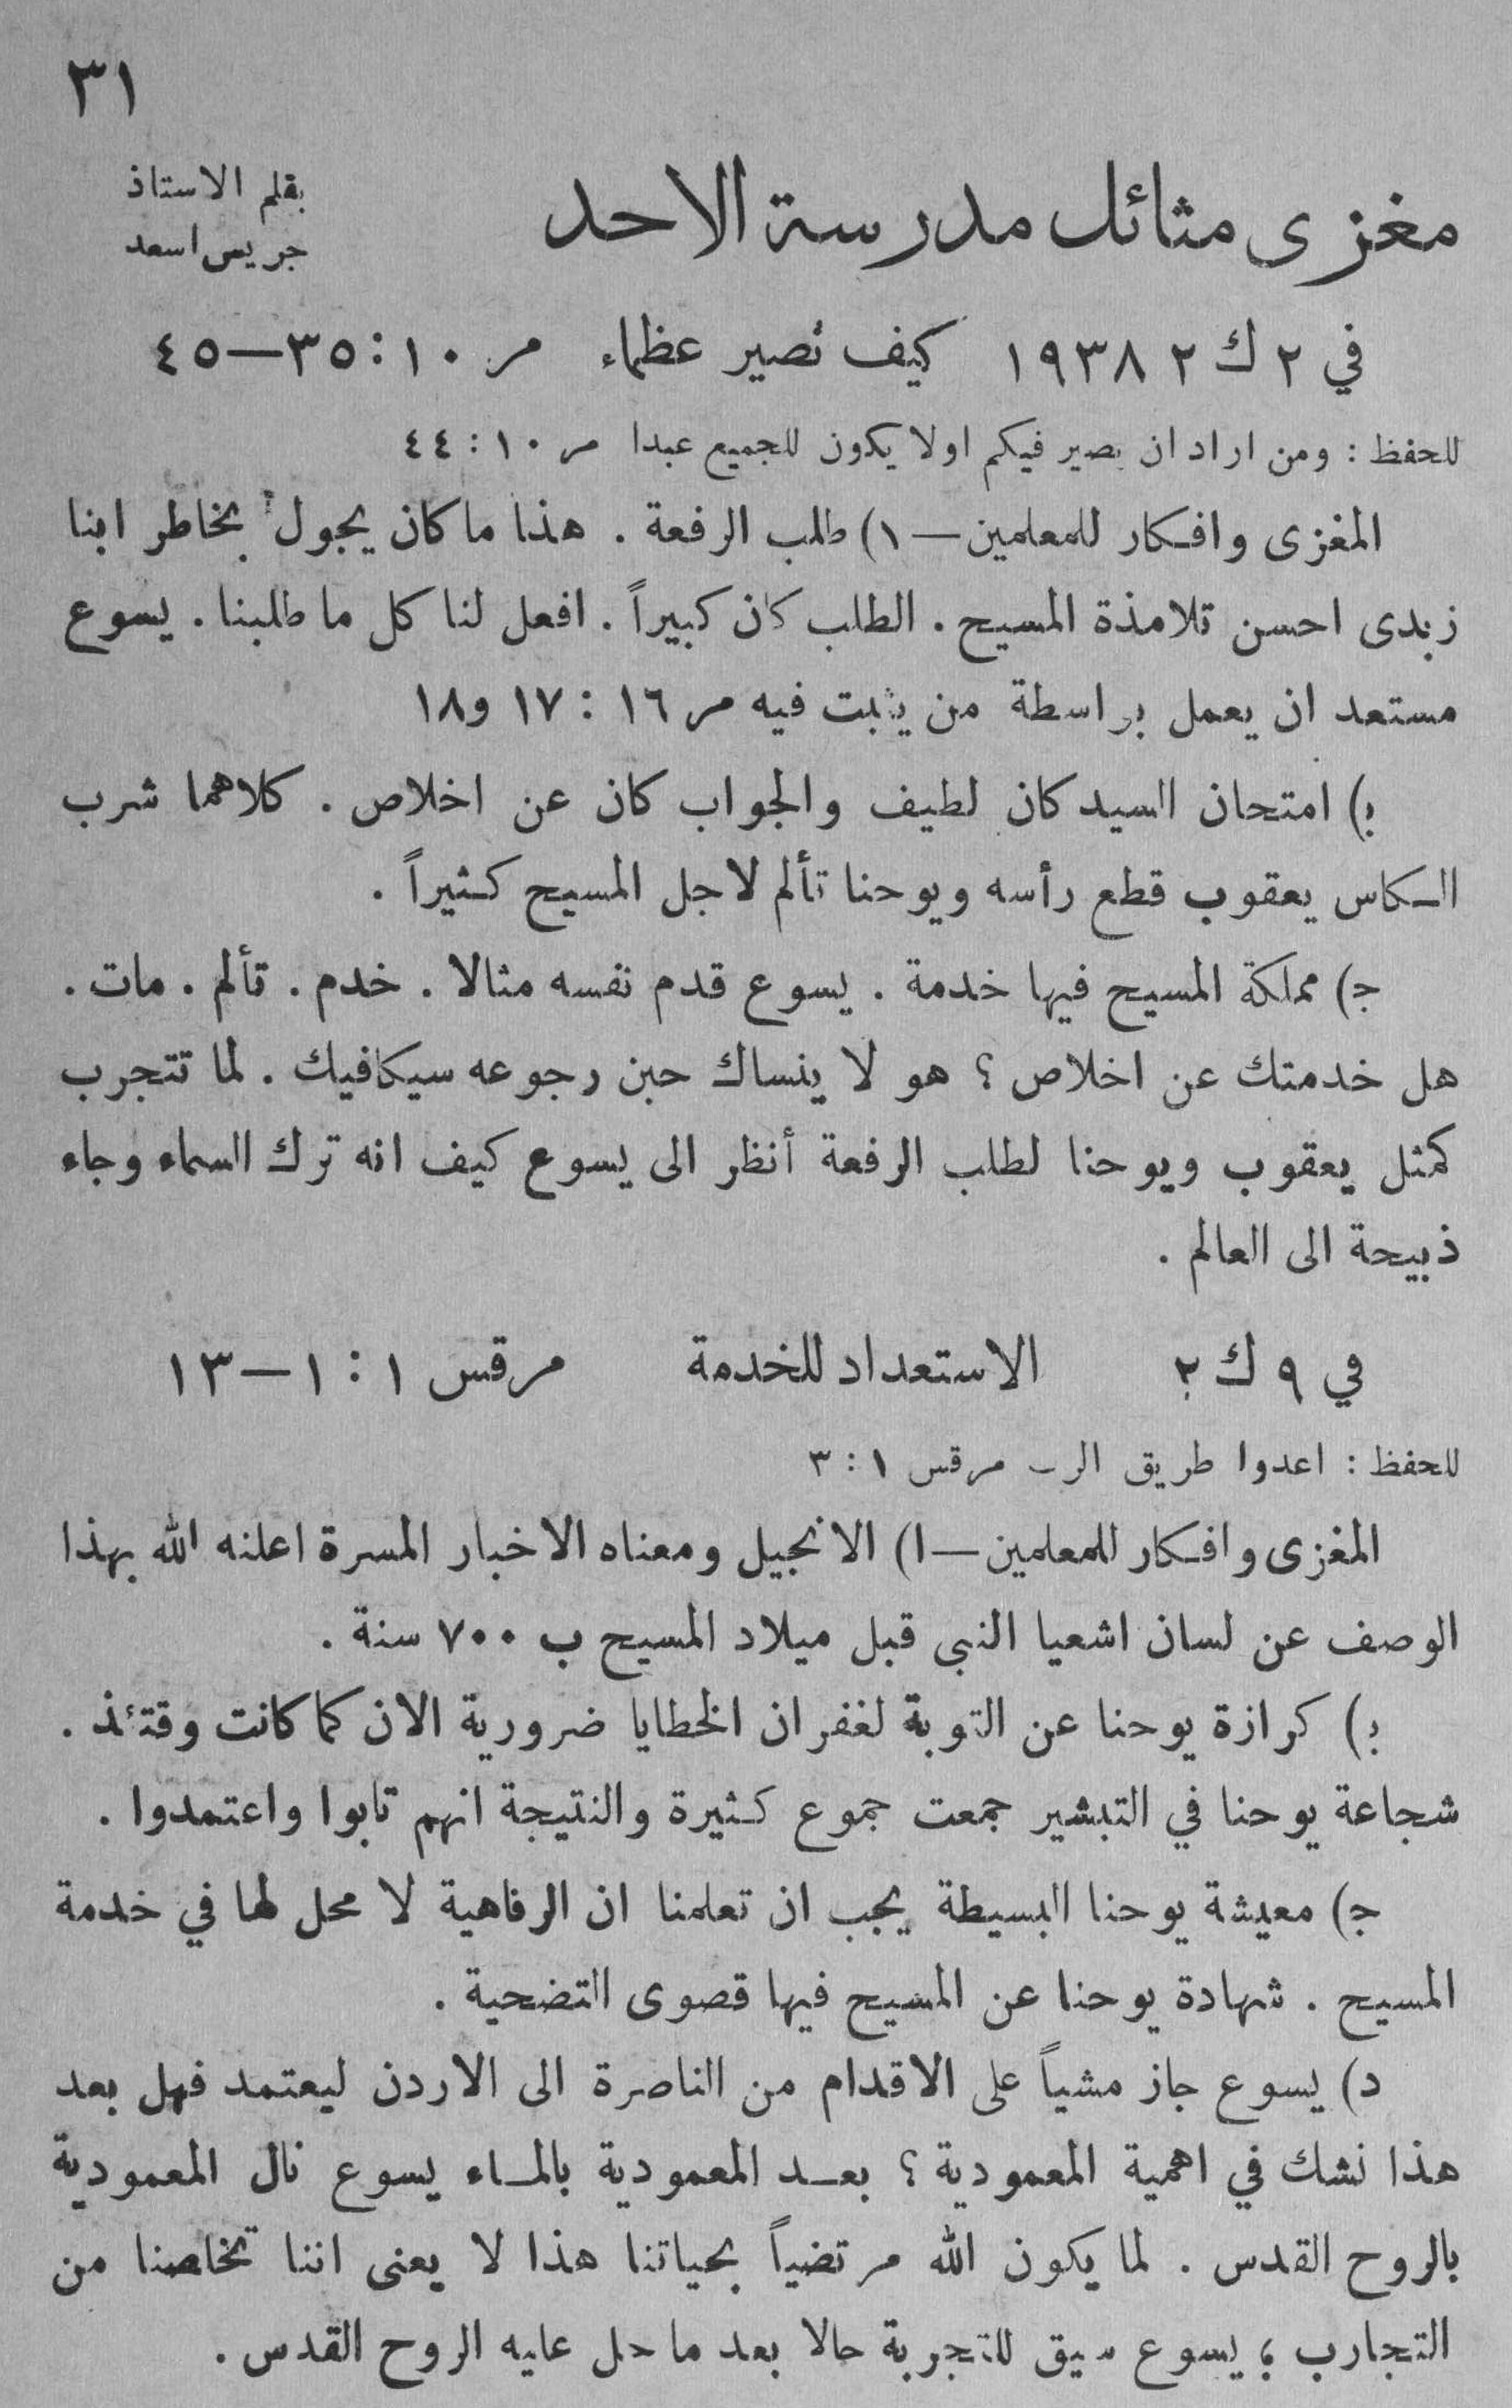 ٣١
مغزى مثائل مدرسة الاحد
بقلم الاستاذ
جريس اسعد
في ٢ ك ٢ ١٩٣٨ كيف نصير عظماء مر ١٠:٣٥—٤٥
للحفظ : ومن اراد ان يصير فيكم اولا يكون للجميع عبدا مر ١٠ : ٤٤
المغزى وافكار للمعلمين—١) طلب الرفعة . هذا ما كان يجول بخاطر ابنا
زبدى احسن تلامذة المسيح . الطلب كان كبيراً . افعل لنا كل ما طلبنا . يسوع
مستعد ان يعمل بواسطة من يثبت فيه مر ١٦ : ١٧ و١٨
ب) امتحان السيد كان لطيف والجواب كان عن اخلاص . كلاهما شرب
الكاس يعقوب قطع رأسه ويوحنا تألم لاجل المسيح كثيراً .
ج) مملكة المسيح فيها خدمة . يسوع قدم نفسه مثالا . خدم . تألم . مات .
هل خدمتك عن اخلاص ؟ هو لا ينساك حين رجوعه سيكافيك . لما تتجرب
كمثل يعقوب ويوحنا لطلب الرفعة أنظر الى يسوع كيف انه ترك السماء وجاء
ذبيحة الى العالم .
في ٩ ك ٢ الاستعداد للخدمة مرقس ١ : ١—١٣
للحفظ : اعدوا طريق الرب مرقس ١ : ٣
المغزى وافكار للمعلمين—ا) الانجيل ومعناه الاخبار المسرة اعلنه الله بهذا
الوصف عن لسان اشعيا النبى قبل ميلاد المسيح ب ٧٠٠ سنة .
ب) كرازة يوحنا عن التوبة لغفران الخطايا ضرورية الان كما كانت وقتئذ .
شجاعة يوحنا في التبشير جمعت جموع كثيرة والنتيجة انهم تابوا واعتمدوا .
ج) معيشة يوحنا البسيطة يجب ان تعلمنا ان الرفاهية لا محل لها في خدمة
المسيح . شهادة يوحنا عن المسيح فيها قصوى التضحية .
د) يسوع جاز مشياً على الاقدام من الناصرة الى الاردن ليعتمد فهل بعد
هذا نشك في اهمية المعمودية ؟ بعد المعمودية بالماء يسوع نال المعمودية
بالروح القدس . لما يكون الله مرتضياً بحياتنا هذا لا يعنى اننا تخلصنا من
التجارب ؛ يسوع سيق للتجربة حالا بعد ما حل عليه الروح القدس .